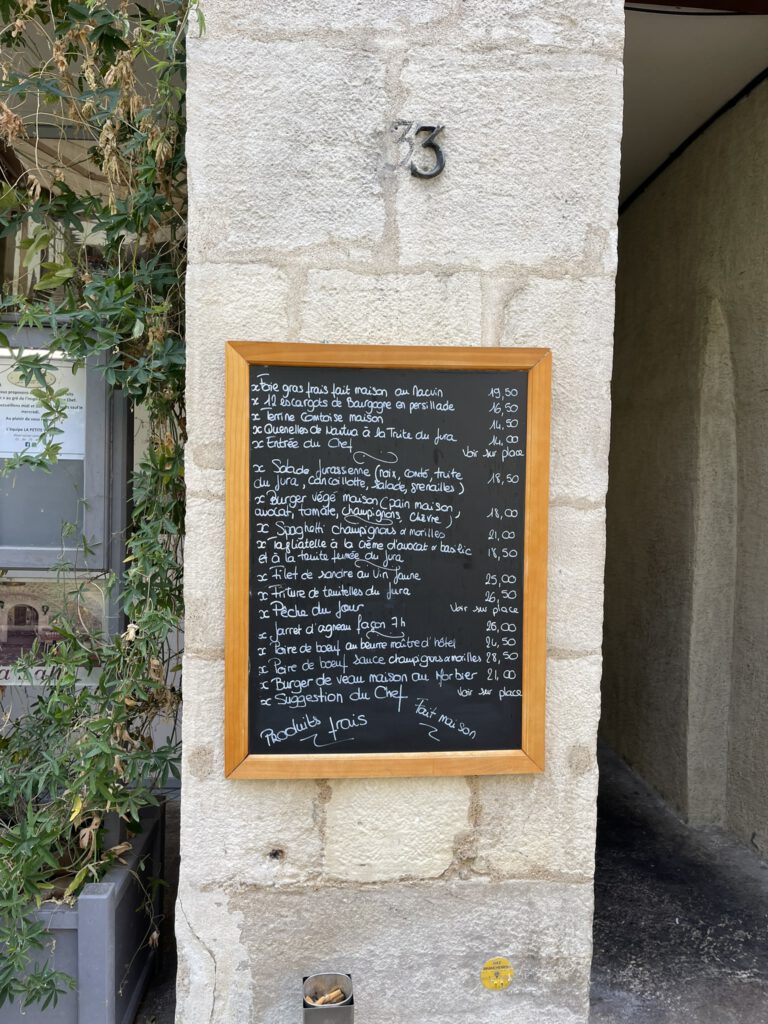 33
x Foie gras frais fait maison au Macvin 19,50
x 12 escargots de Bourgogne en persillade 16,50
x Terrine Comtoise maison 14,50
x Quenelles de Nantua à la Truite du Jura 14,00
x Entrée du Chef Voir sur place
x Salade Jurassienne (noix, comté, truite
du Jura, cancoillotte, salade, grenailles) 18,50
x Burger végé maison (pain maison,
avocat, tomate, champignons, chèvre) 18,00
x Spaghetti champignons & morilles 21,00
x Tagliatelle à la crème d'avocat & basilic
et à la truite fumée du Jura 18,50
x Filet de sandre au Vin Jaune 25,00
x Friture de truitelles du Jura 26,50
x Pêche du Jour Voir sur place
x Jarret d'agneau façon 7h 26,00
x Poire de boeuf au beurre maître d'hôtel 24,50
x Poire de boeuf sauce champignons & morilles 28,50
x Burger de veau maison au Morbier 21,00
x Suggestion du Chef Voir sur place
Produits frais Fait maison